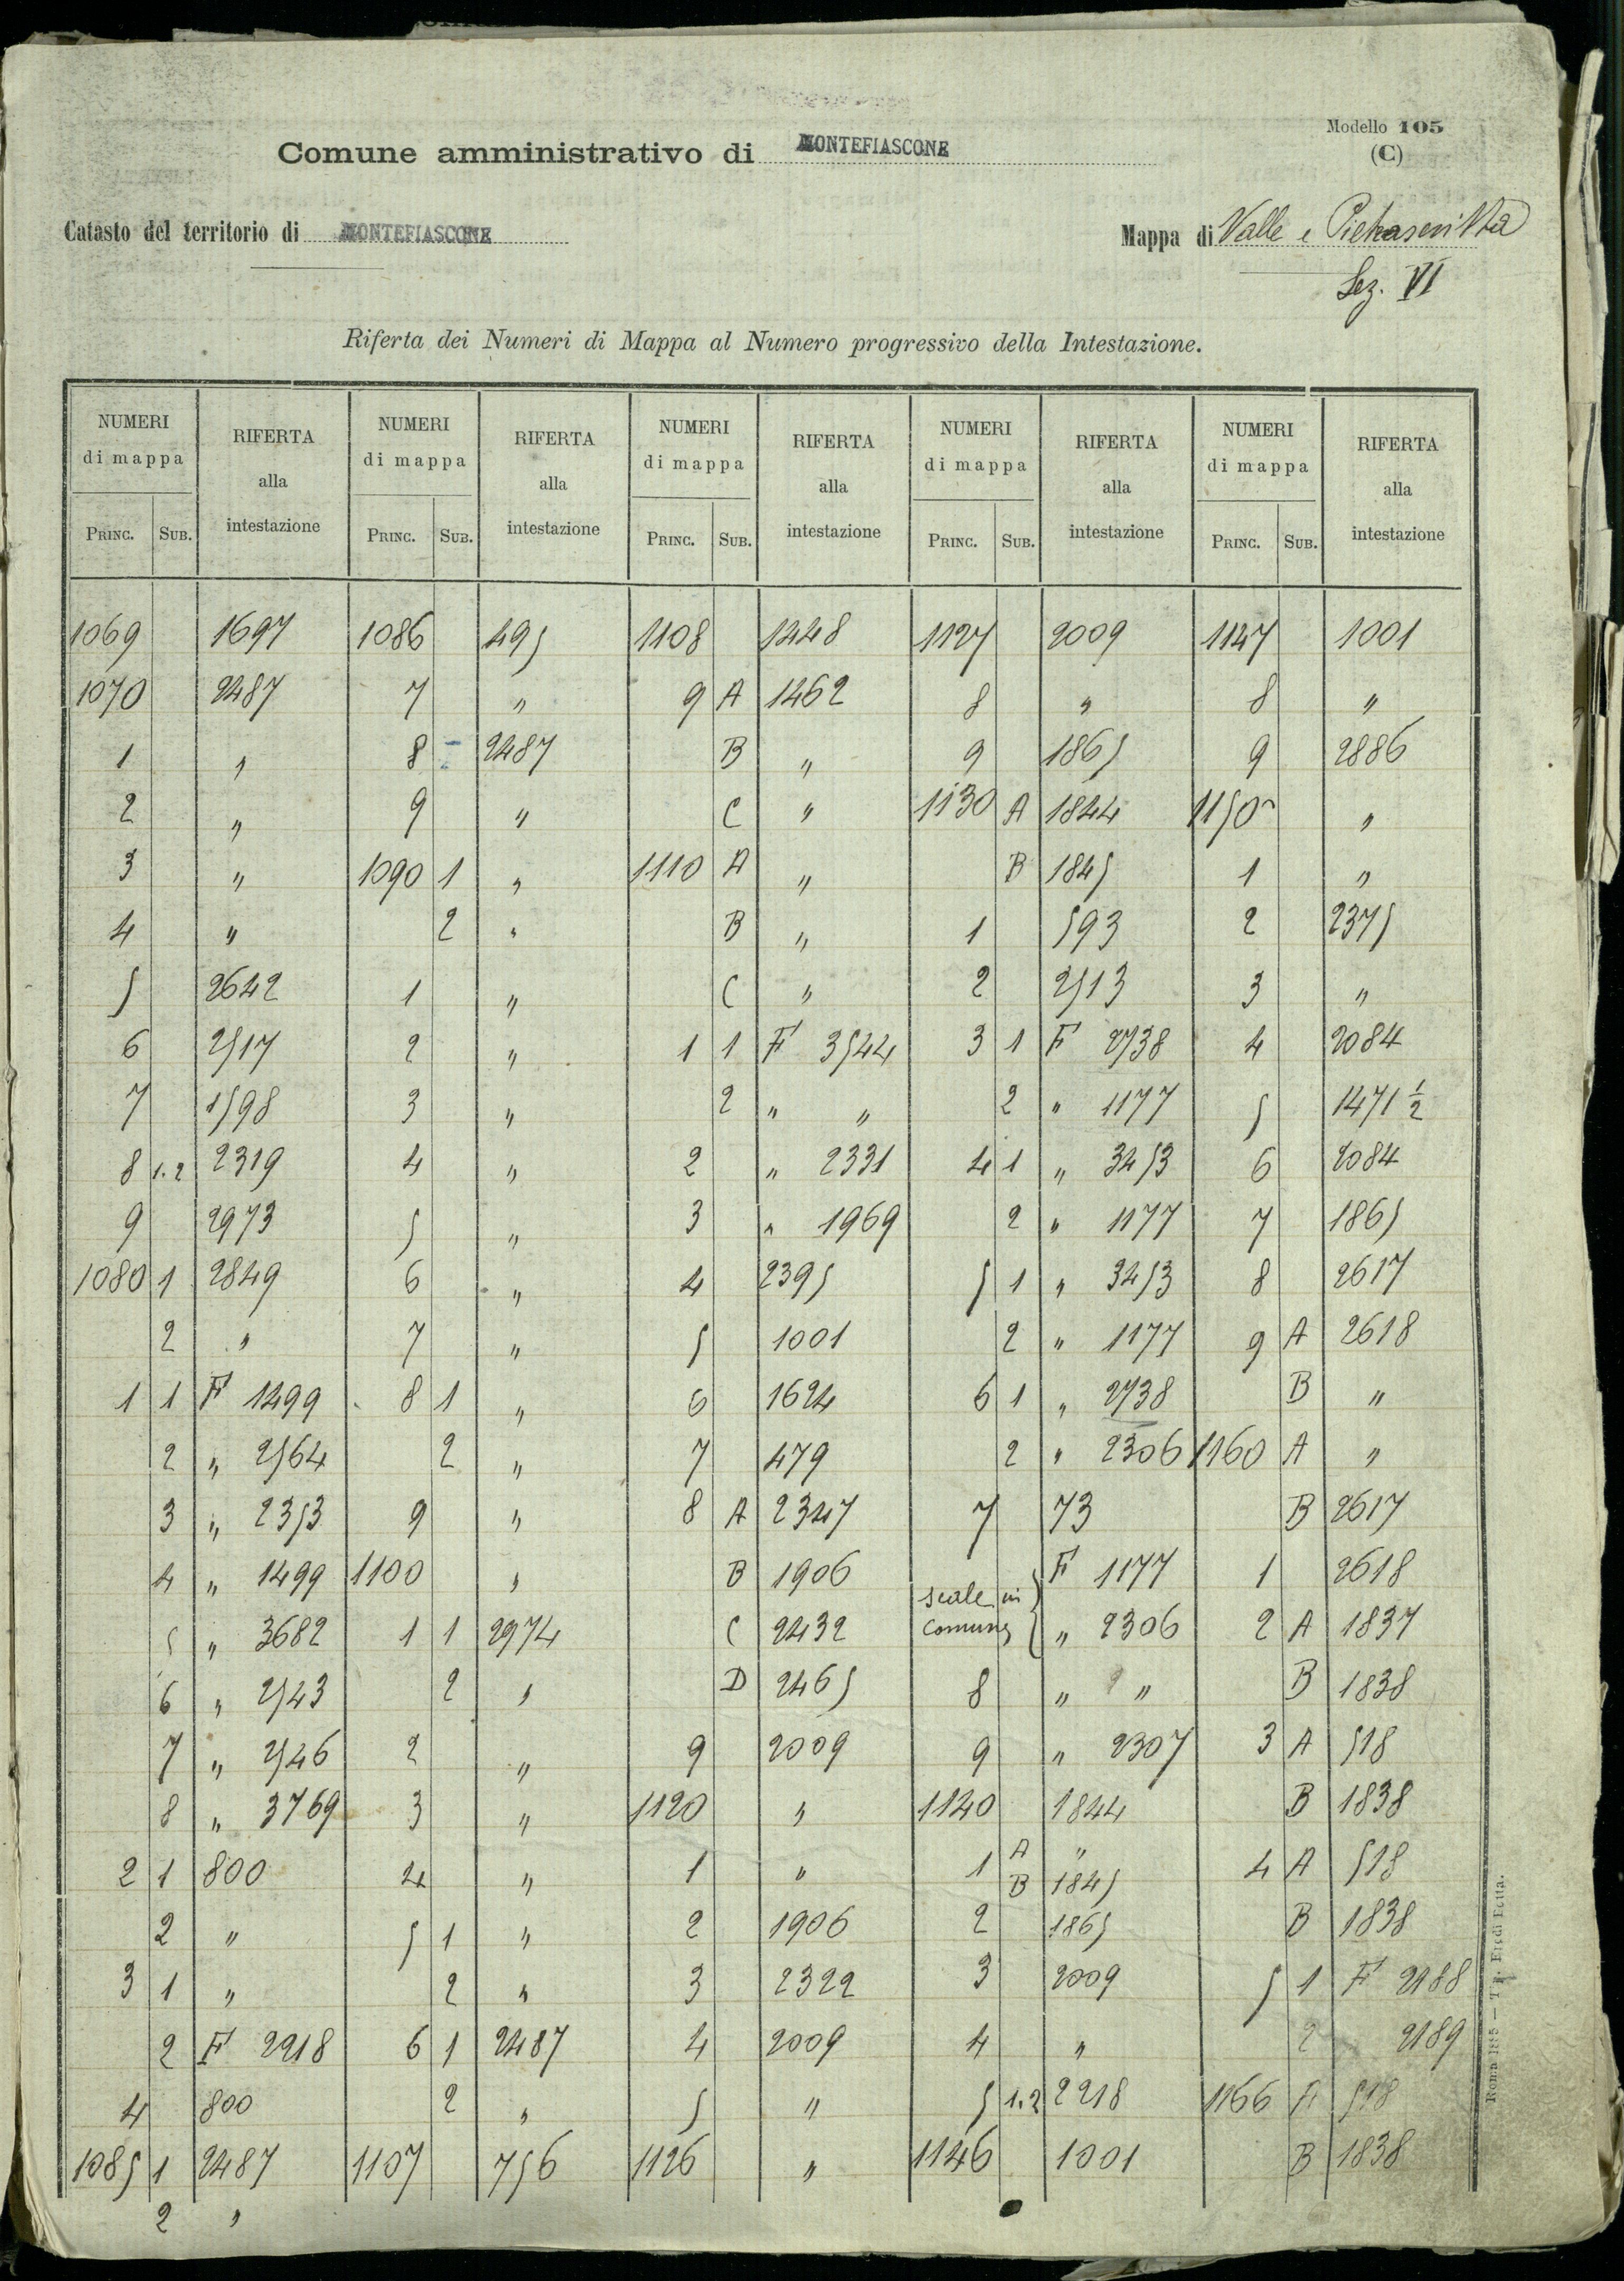 Modello 105
(C)
Comune amministrativo di MONTEFIASCONE
Catasto del territorio di MONTEFIASCONE
Mappa di Valle e Pietrascritta
Sez. VI
Riferta dei Numeri di Mappa al Numero progressivo della Intestazione.
NUMERI di mappa RIFERTA alla intestazione NUMERI di mappa RIFERTA alla intestazione NUMERI di mappa RIFERTA alla intestazione NUMERI di mappa RIFERTA alla intestazione NUMERI di mappa RIFERTA alla intestazione
PRINC. SUB. PRINC. SUB. PRINC. SUB. PRINC. SUB. PRINC. SUB.
1069 1697 1086 495 1108 1448 1127 2009 1147 1001
1070 2487 7 " 9 A 1462 8 " 8 "
1 " 8 2487 B " 9 1865 9 2886
2 " 9 " C " 1130 A 1844 1150 "
3 " 1090 1 " 1110 A " B 1845 1 "
4 " 2 " B " 1 593 2 2375
5 2642 1 " C " 2 2513 3 "
6 2517 2 " 1 1 F 3544 3 1 F 2738 4 2084
7 1598 3 " 2 " " 2 " 1177 5 1471 1/2
8 1.2 2319 4 " 2 " 2331 4 1 " 3453 6 2084
9 2973 5 " 3 " 1969 2 " 1177 7 1865
1080 1 2849 6 " 4 2395 5 1 " 3453 8 2617
2 " 7 " 5 1001 2 " 1177 9 A 2618
1 1 F 1499 8 1 " 6 1624 6 1 " 2738 B "
2 " 2564 2 " 7 479 2 " 2306 1160 A "
3 " 2353 9 " 8 A 2347 7 73 B 2617
4 " 1499 1100 " B 1906 F 1177 1 2618
scale in comune
5 " 3682 1 1 2974 C 2432 " 2306 2 A 1837
6 " 2543 2 " D 2465 8 " " B 1838
7 " 2546 2 " 9 2009 9 " 2307 3 A 518
8 " 3769 3 " 1120 " 1140 1844 B 1838
2 1 800 4 " 1 " 1 A " 4 A 518
B 1845
2 " 5 1 " 2 1906 2 1865 B 1838
3 1 " 2 " 3 2322 3 2009 5 1 F 2188
2 F 2218 6 1 2487 4 2009 4 " 2 2189
4 800 2 " 5 " 5 1.2 2218 1166 A 518
1085 1 2487 1107 756 1126 " 1146 1001 B 1838
2 "